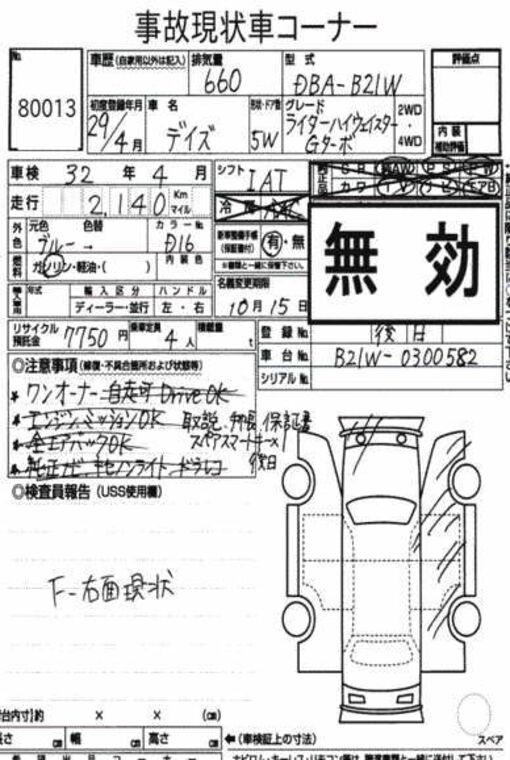 事故現状車コーナー
No. 80013
車歴(自家用以外は記入)
排気量 660
型式 DBA-B21W
評価点
初度登録年月 29/4月
車名 デイズ
形状・ドア数 5W
グレード ライダーハイウェイスターGターボ
2WD・4WD
内装補助評価
車検 32年4月
シフト IAT
走行 2,140 Km マイル
外色 元色 色替 カラーNo.
ブルー→ D16
新車整備手帳(保証書付) 有・無
※書類と一緒に保管下さい。
無効
燃料 ガソリン・軽油・( )
内装色
名義変更期限
10月15日
輸入車用 年式 輸入区分 ハンドル
ディーラー・並行 左・右
リサイクル預託金 7750円
乗車定員 4人
積載量 t
登録No. 後日
車台No. B21W-0300582
シリアルNo.
◎注意事項(修復・不具合箇所および状態等)
* ワンオーナー 自走可 Drive OK
* エンジン、ミッションOK 取説、手帳、保証書
* 全エアバッグOK スペアスマートキー×1
* 純正ナビ キセノンライト ドラレコ 後日
◎検査員報告(USS使用欄)
F-右面現状
荷台内寸)約 × × (cm)
長さ cm 幅 cm 高さ cm
←(車検証上の寸法)
スペア